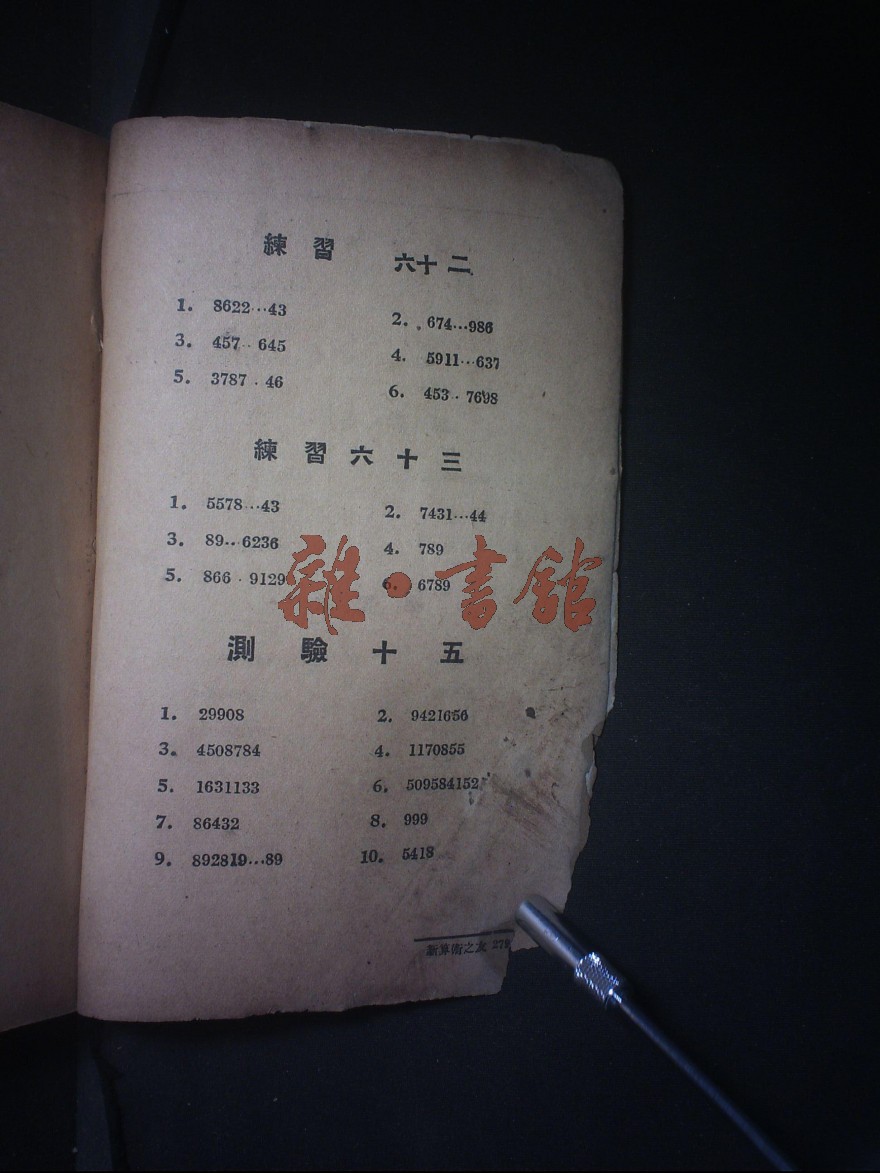 練習 六十二
1. 8622...43 2. 674...986
3. 457..645 4. 5911...637
5. 3787.46 6. 453.7698
練習六十三
1. 5578...43 2. 7431...44
3. 89..6236 4. 789
5. 866.9129 6. 6789
雜·書館
測驗十五
1. 29908 2. 9421656
3. 4508784 4. 1170855
5. 1631133 6. 509584152
7. 86432 8. 999
9. 892819...89 10. 5418
新算術之友